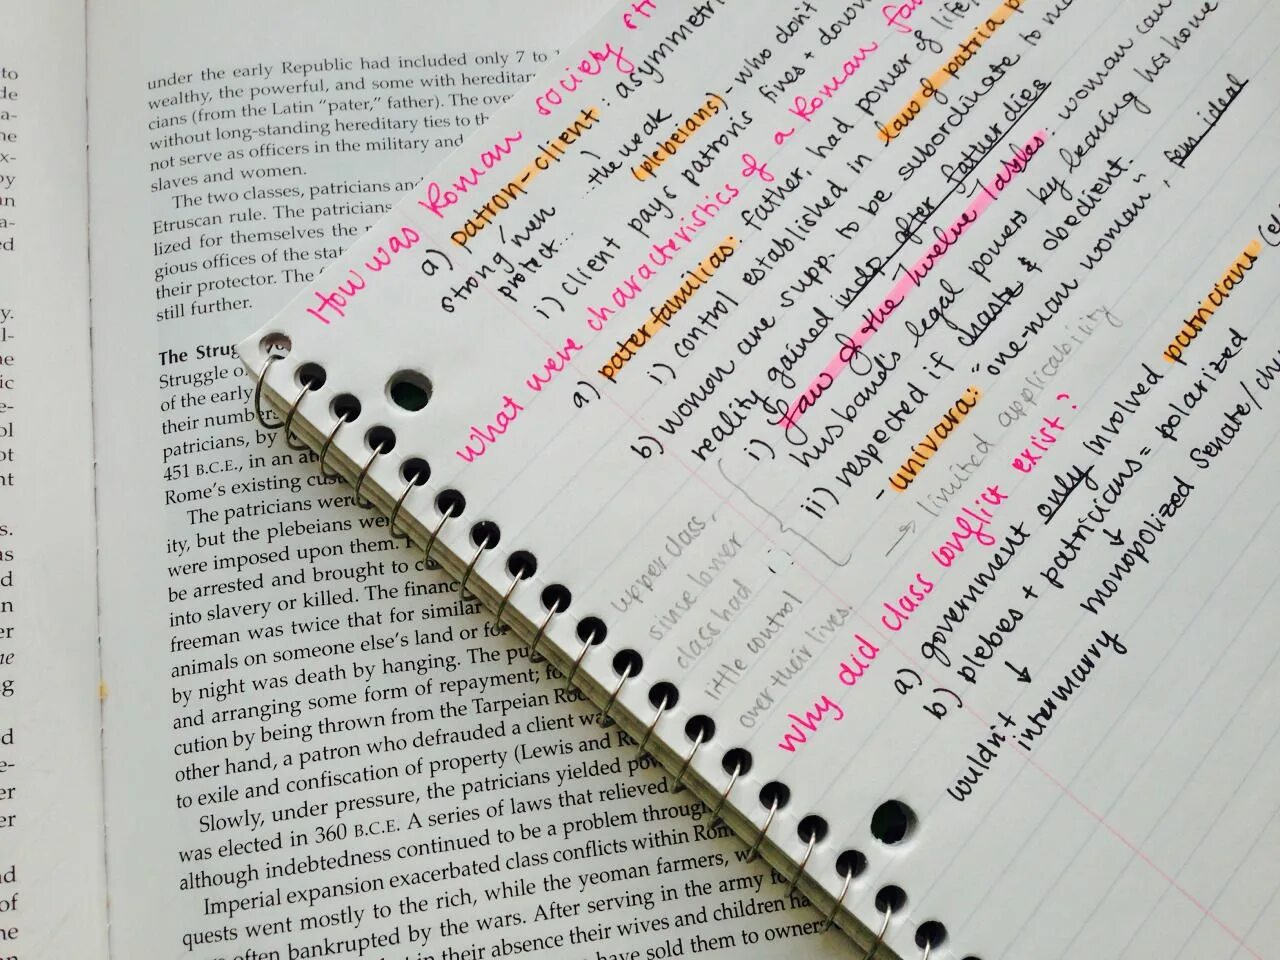 to
de
a-
ne
x-
by
an
a-
ed
y.
l-
he
ic
e-
ol
ot
nt
s.
as
d
n
er
ne
g
d
e-
er
er
nd
of
he
under the early Republic had included only 7 to
wealthy, the powerful, and some with hereditar
cians (from the Latin "pater," father). The ove
without long-standing hereditary ties to th
not serve as officers in the military and
slaves and women.
The two classes, patricians an
Etruscan rule. The patricians
lized for themselves the
gious offices of the stat
their protector. The
still further.
The Strug
Struggle o
of the early
their numbers
patricians, by
451 B.C.E., in an at
Rome's existing cust
The patricians were
ity, but the plebeians we
were imposed upon them.
be arrested and brought to c
into slavery or killed. The financ
freeman was twice that for similar
animals on someone else's land or for
by night was death by hanging. The pu
and arranging some form of repayment; fo
cution by being thrown from the Tarpeian Ro
other hand, a patron who defrauded a client wa
to exile and confiscation of property (Lewis and R
Slowly, under pressure, the patricians yielded pow
was elected in 360 B.C.E. A series of laws that relieved
although indebtedness continued to be a problem through
Imperial expansion exacerbated class conflicts within Rom
quests went mostly to the rich, while the yeoman farmers, w
often bankrupted by the wars. After serving in the army fo
in their absence their wives and children ha
have sold them to owner
How was Roman society str
a) patron-client: asymmetri
strong men protect... ...the weak (plebeians) - who don't
i) client pays patrons fines + down
What were characteristics of a Roman fa
a) pater familias: father, had power of life,
i) control established in law of patria p
b) women are supp. to be subordinate to me
reality gained indp. after father dies
i) Law of the Twelve Tables: woman can
husband's legal powers by leaving his home
ii) respected if chaste & obedient.
- univara: "one-man woman", fem ideal
→ limited applicability
upper class,
sinse lower
class had
little control
over their lives.
Why did class conflict exist?
a) government only involved patricians (e
b) plebes + patricians = polarized
↓ ↓
wouldn't monopolized Senate/
intermarry